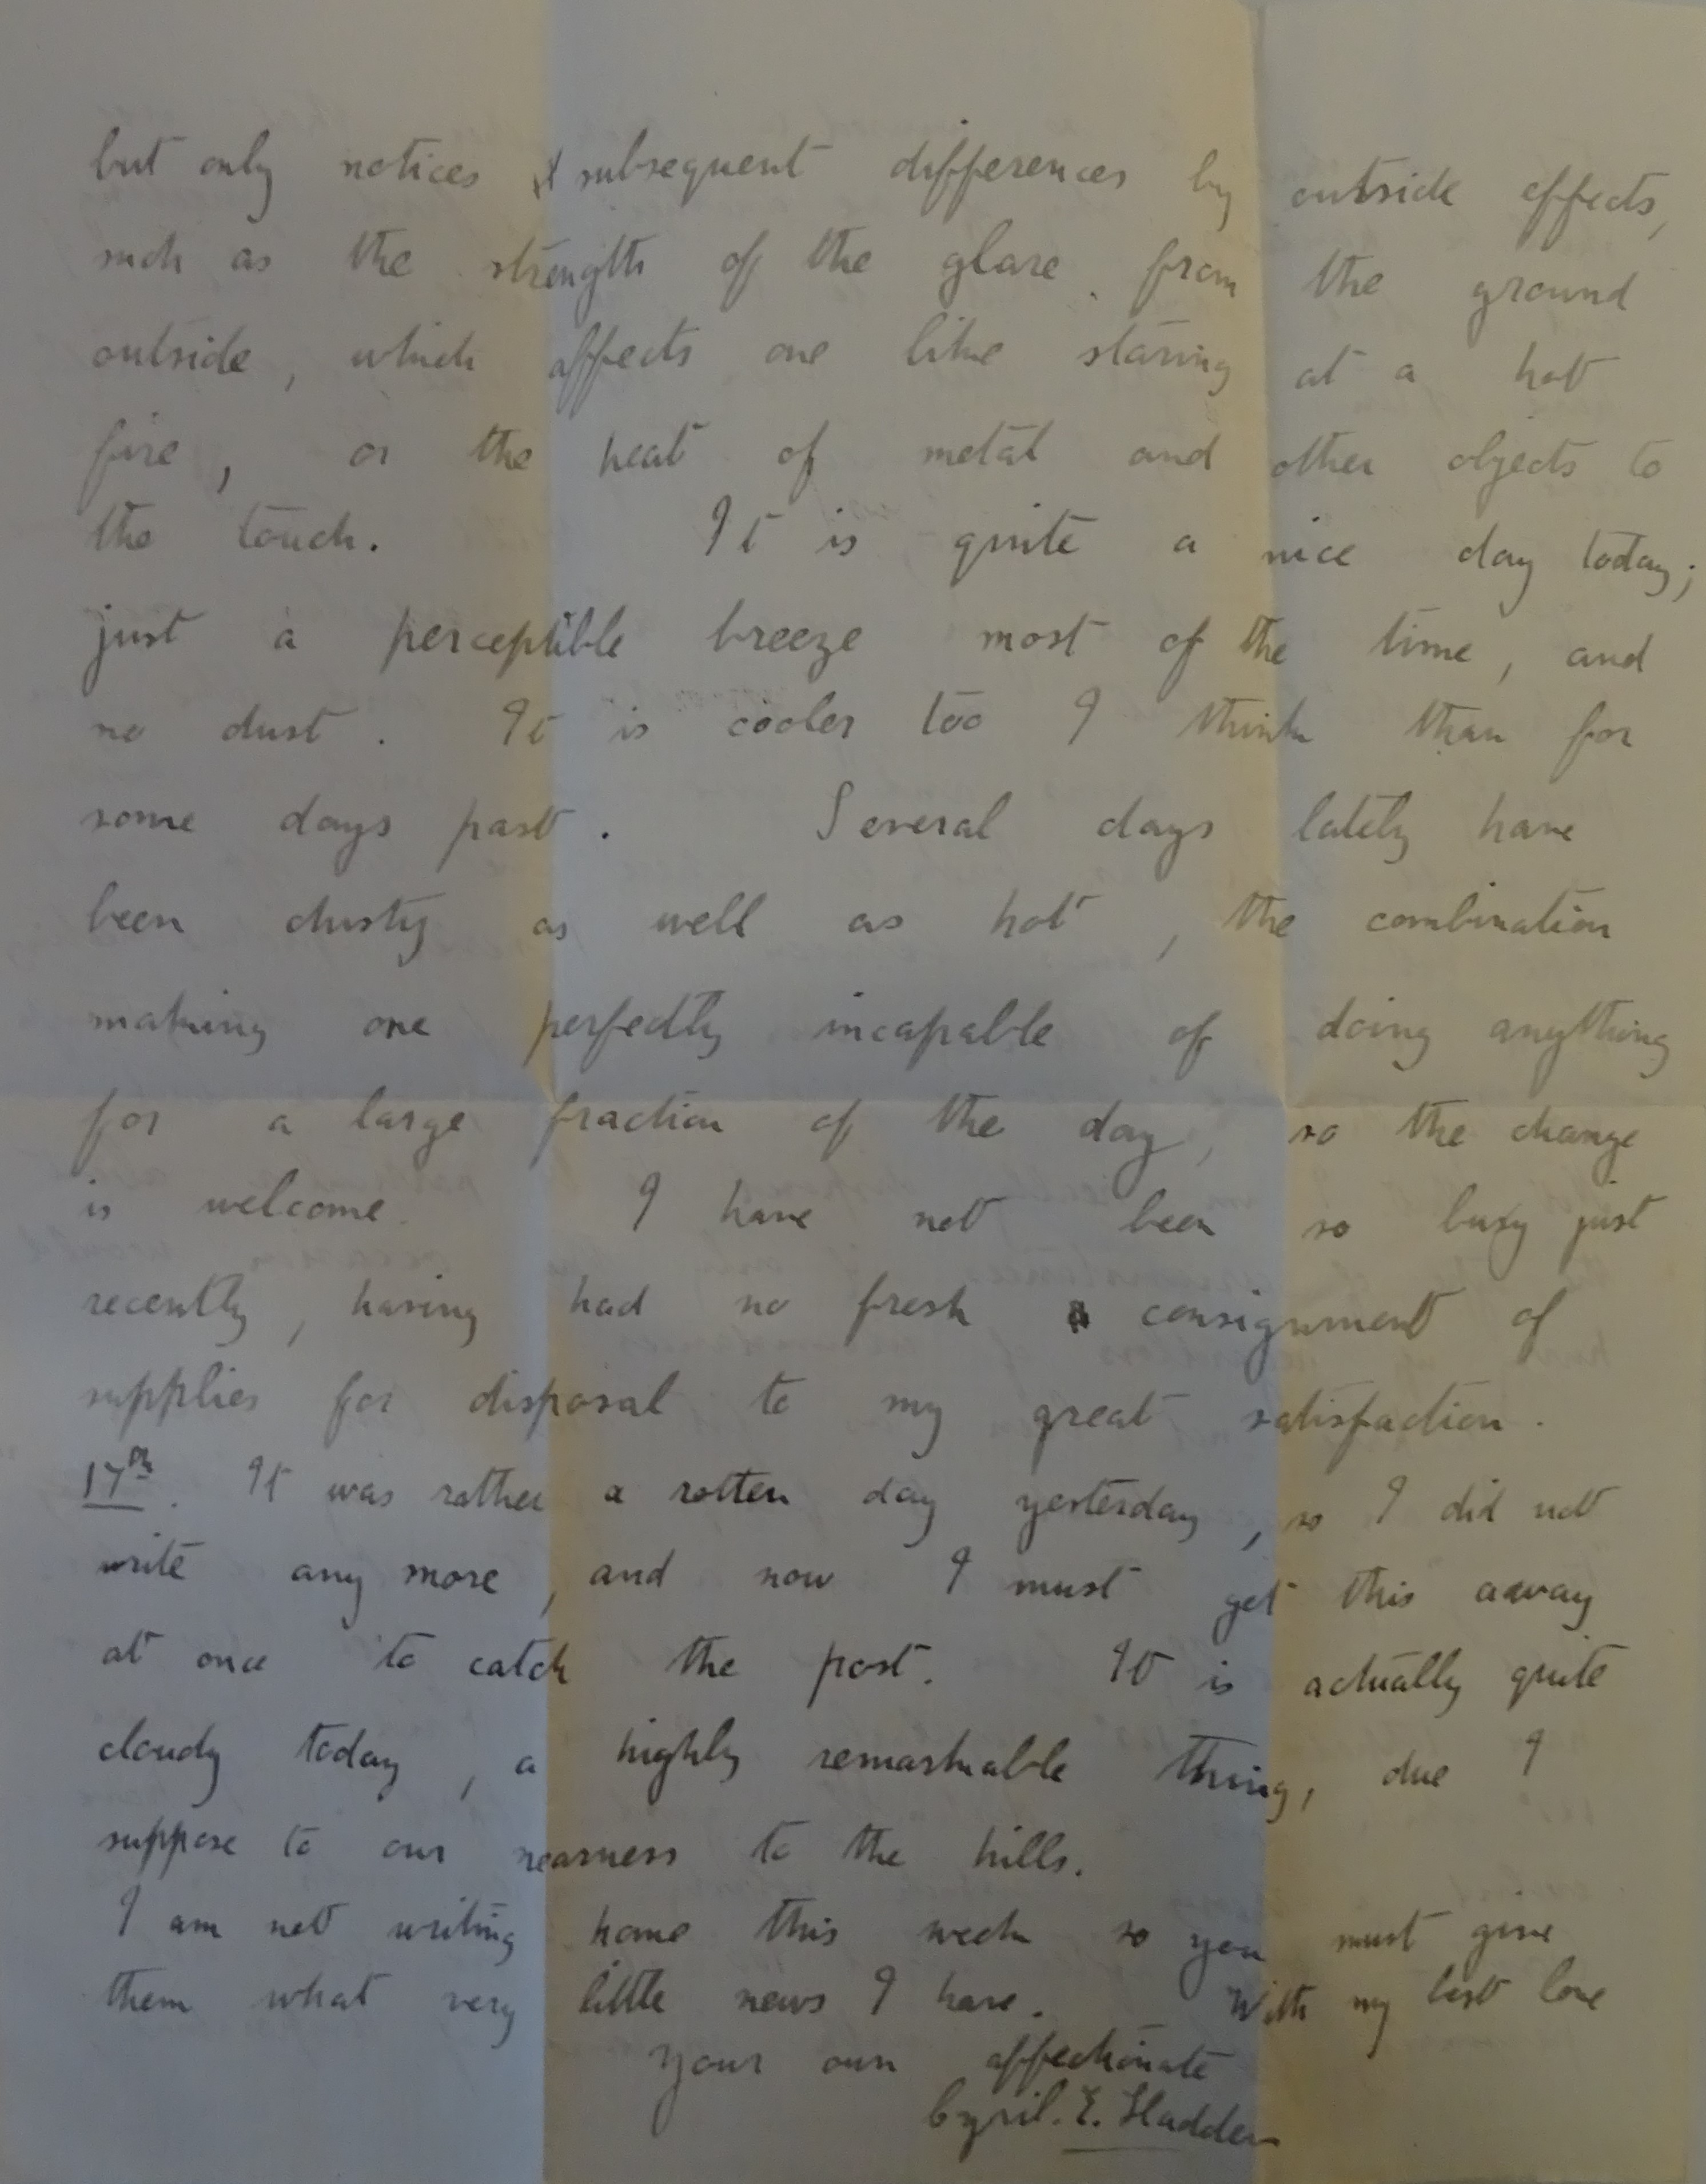 but only notices subsequent differences by outside effects,
such as the strength of the glare from the ground
outside, which affects one like staring at a hot
fire, or the heat of metal and other objects to
the touch. It is quite a nice day today;
just a perceptible breeze most of the time, and
no dust. It is cooler too I think than for
some days past. Several days lately have
been dusty as well as hot, the combination
making one perfectly incapable of doing anything
for a large fraction of the day, so the change
is welcome. I have not been so busy just
recently, having had no fresh consignment of
supplies for disposal to my great satisfaction.
17th. It was rather a rotten day yesterday, so I did not
write any more, and now I must get this away
at once to catch the post. It is actually quite
cloudy today, a highly remarkable thing, due I
suppose to our nearness to the hills.
I am not writing home this week so you must give
them what very little news I have. With my best love
Your own affectionate
Cyril. E. Sladden